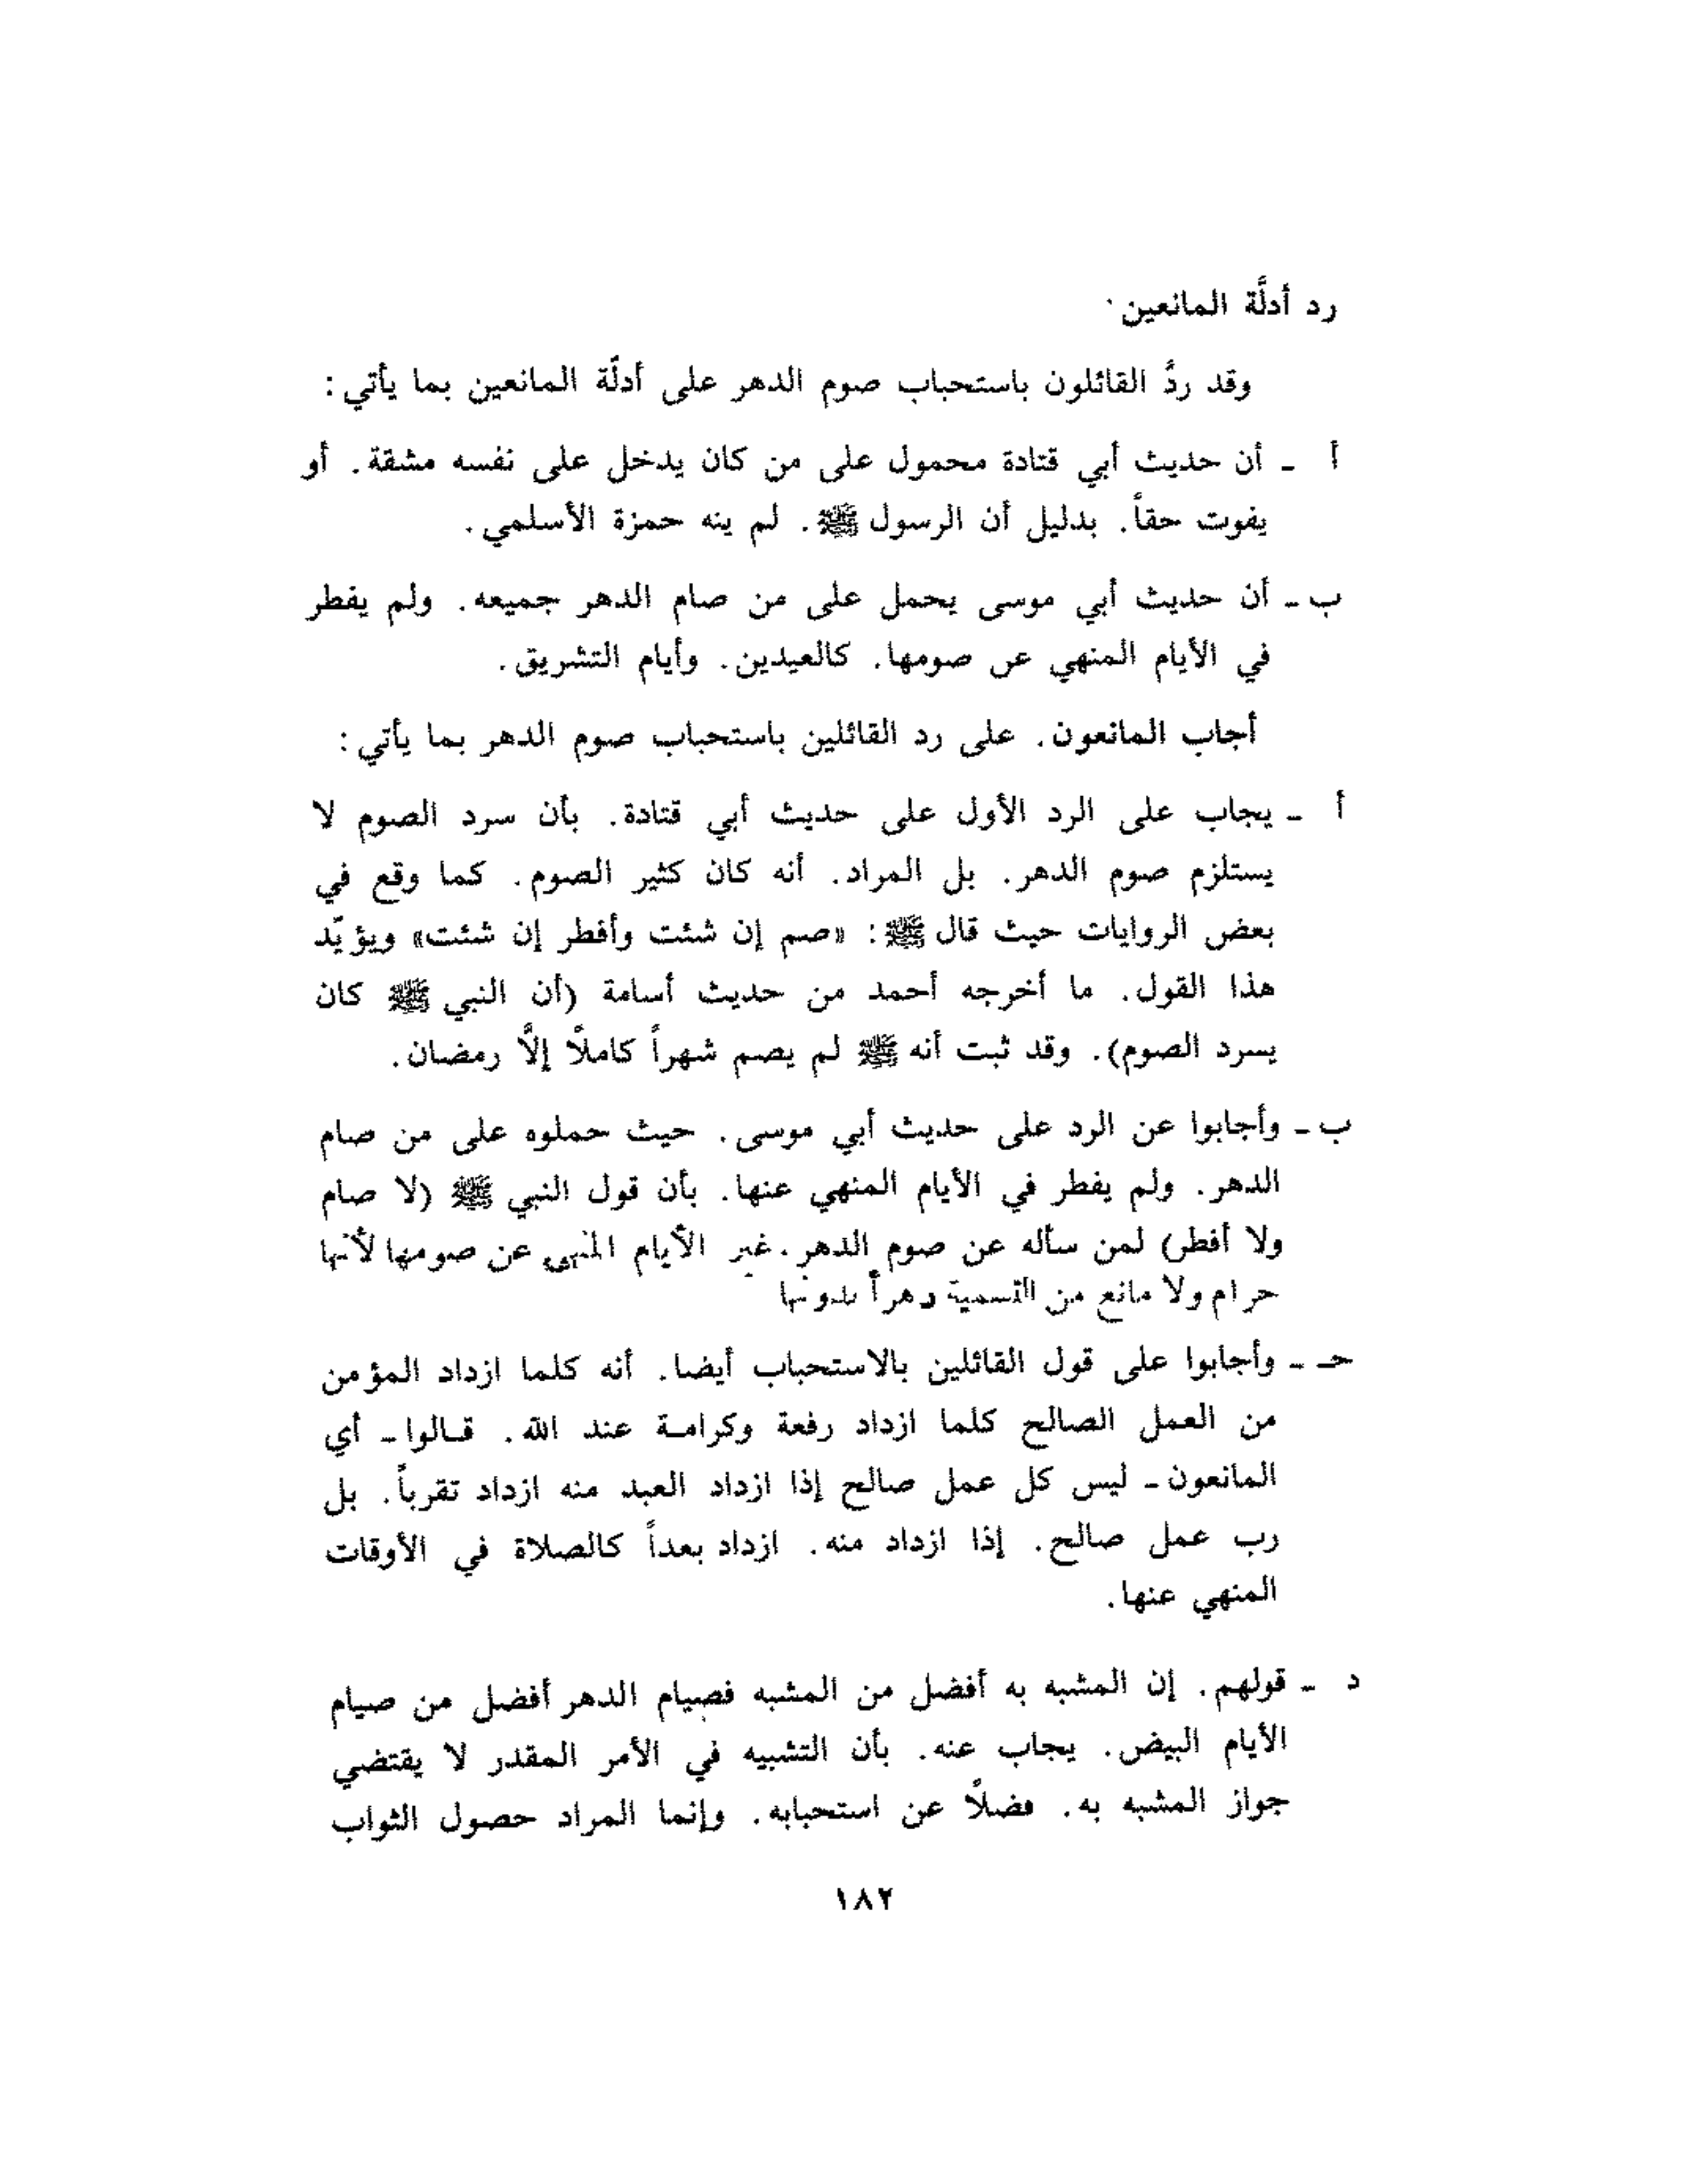 رد أدلَّة المانعين
وقد ردَّ القائلون باستحباب صوم الدهر على أدلّة المانعين بما يأتي:
أ - أن حديث أبي قتادة محمول على من كان يدخل على نفسه مشقة. أو
يفوت حقاً. بدليل أن الرسول ﷺ. لم ينه حمزة الأسلمي.
ب - أن حديث أبي موسى يحمل على من صام الدهر جميعه. ولم يفطر
في الأيام المنهي عن صومها. كالعيدين. وأيام التشريق.
أجاب المانعون. على رد القائلين باستحباب صوم الدهر بما يأتي:
أ - يجاب على الرد الأول على حديث أبي قتادة. بأن سرد الصوم لا
يستلزم صوم الدهر. بل المراد. أنه كان كثير الصوم. كما وقع في
بعض الروايات حيث قال ﷺ: «صم إن شئت وأفطر إن شئت» ويؤيّد
هذا القول. ما أخرجه أحمد من حديث أسامة (أن النبي ﷺ كان
يسرد الصوم). وقد ثبت أنه ﷺ لم يصم شهراً كاملًا إلَّا رمضان.
ب - وأجابوا عن الرد على حديث أبي موسى. حيث حملوه على من صام
الدهر. ولم يفطر في الأيام المنهي عنها. بأن قول النبي ﷺ (لا صام
ولا أفطر) لمن سأله عن صوم الدهر. غير الأيام المنهي عن صومها لأنها
حرام ولا مانع من التسمية دهراً بدونها
حـ - وأجابوا على قول القائلين بالاستحباب أيضا. أنه كلما ازداد المؤمن
من العمل الصالح كلما ازداد رفعة وكرامـة عند الله. قـالوا - أي
المانعون - ليس كل عمل صالح إذا ازداد العبد منه ازداد تقرباً. بل
رب عمل صالح. إذا ازداد منه. ازداد بعداً كالصلاة في الأوقات
المنهي عنها.
د - قولهم. إن المشبه به أفضل من المشبه فصيام الدهر أفضل من صيام
الأيام البيض. يجاب عنه. بأن التشبيه في الأمر المقدر لا يقتضي
جواز المشبه به. فضلًا عن استحبابه. وإنما المراد حصول الثواب
١٨٢